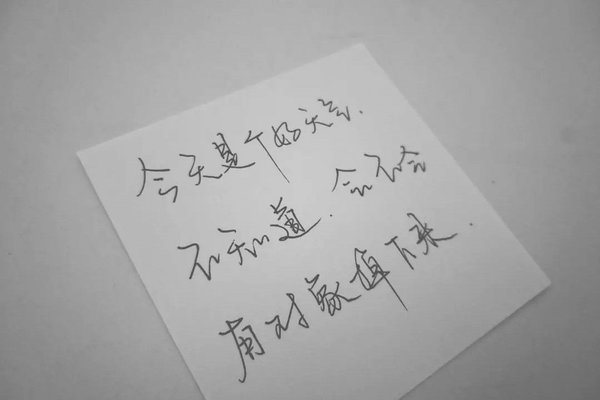 今天是个好天气.
不知道.会不会
有对象掉下来.